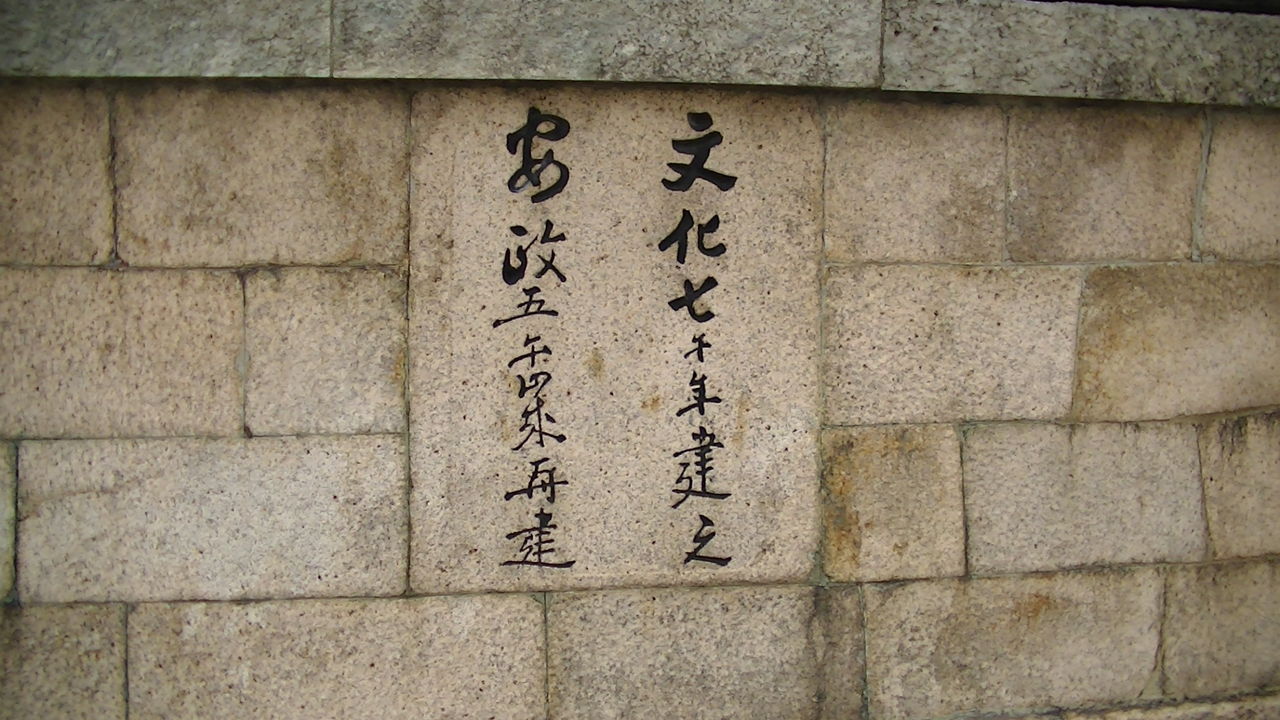 文化七午年建之
安政五午歳再建